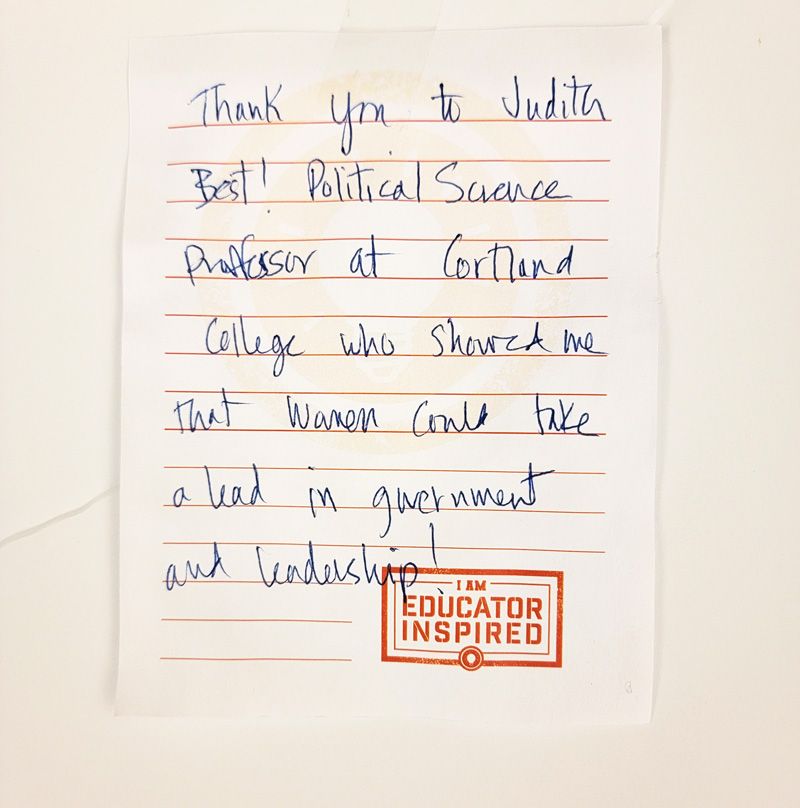 Thank you to Judith
Best! Political Science
professor at Cortland
College who showed me
that women could take
a lead in government
and leadership!
I AM
EDUCATOR
INSPIRED